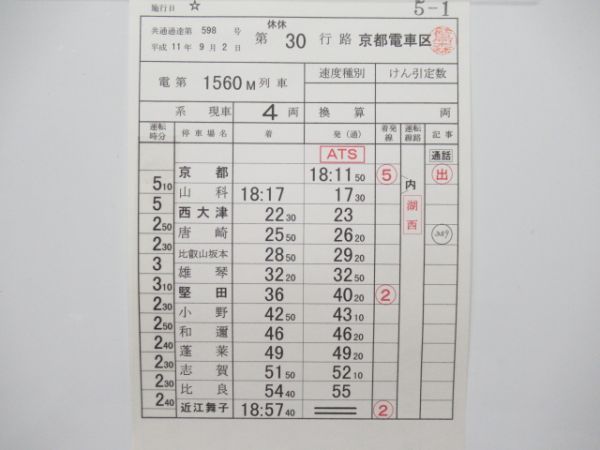 施行日 ☆ 5-1
共通通達第 598 号
平成 11年 9月 2日
休休
第 30 行路 京都電車区
電第 1560M 列車 速度種別 けん引定数
系 現車 4 両 換算 両
運転時分 停車場名 着 発(通) 着発線 運転線路 記事
ATS 通話
京都 18:11 50 ⑤ 内 出
5 10
山科 18:17 17 30 湖西
5
西大津 22 30 23
2 50
唐崎 25 50 26 20
2 30
比叡山坂本 28 50 29 20
3
雄琴 32 20 32 50
3 10
堅田 36 40 20 ②
2 30
小野 42 50 43 10
2 50
和邇 46 46 20
2 40
蓬莱 49 49 20
2 30
志賀 51 50 52 10
2 30
比良 54 40 55
2 40
近江舞子 18:57 40 ②